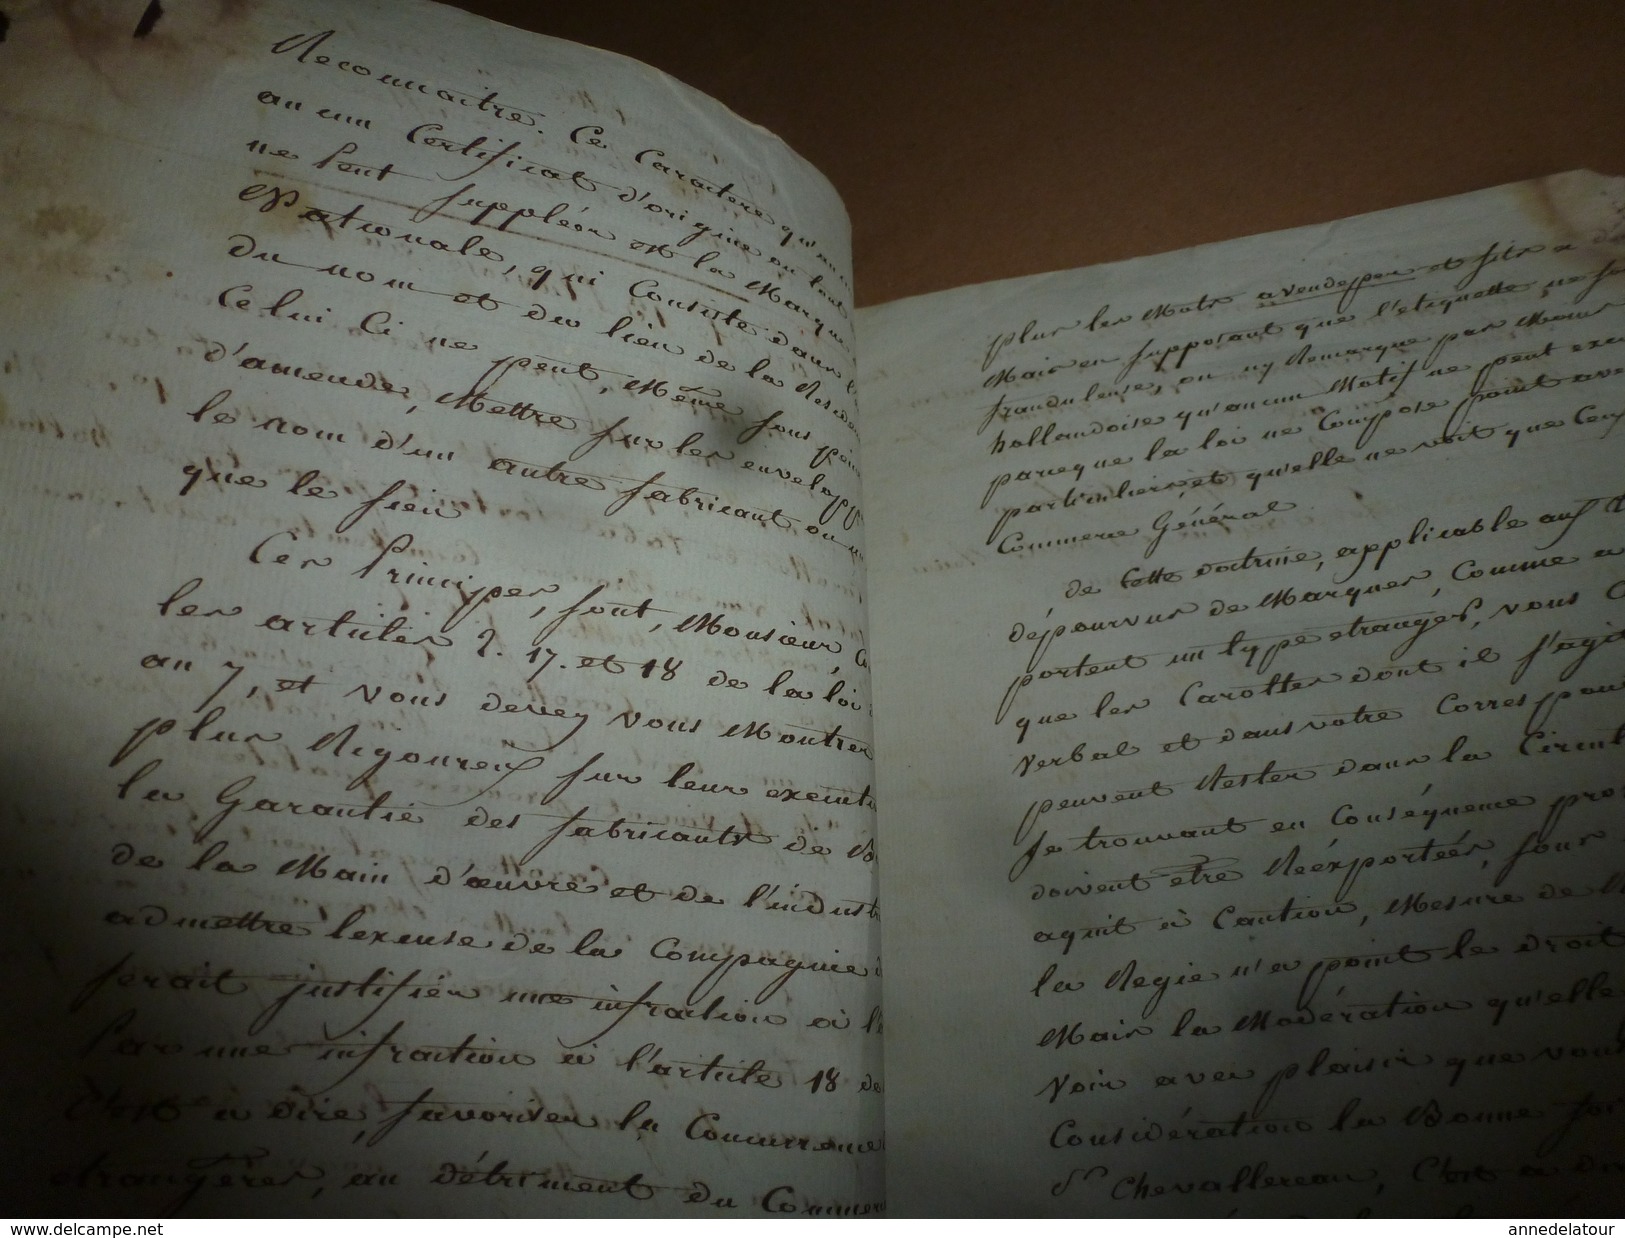 Reconnaitre. Ce Caractere qu'au
aucun Certificat d'origine ou tout
ne peut suppléer est la Marque
Nationale, qui Consiste dans l
du nom et du lieu de la Residen
Celui Ci ne peut, Même sous pein
d'amende, Mettre sur les envelopp
le nom d'un autre fabricant ou un
que le sien
Ces Principes, sont, Monsieur, Co
les articles 2. 17. et 18 de la loi
an 7, et vous devez vous Montrer
plus Rigoureux sur leur execut
la Garantie des fabricants de
de la Main d'œuvre et de l'indust
admettre l'excuse de la Compagnie
serait justifier une infraction à l'
Par une infraction à l'article 18 de
C'est a dire, favoriser la Concurrence
etrangères, au détriment du Commer
plus les Mots avendepen et fils a
Mais en supposant que l'etiquette ne f
frauduleuse, on ny Remarque pas Moins
hollandoise qu'aucun Motif ne peut excu
parceque la loi ne Compose point ave
particuliers, et qu'elle ne voit que
Commerce Général
de Cette doctrine, applicable aux
dépourvus de Marques, Comme a
portent un type etranger, vous
que les Carottes dont il s'agit
verbal et dans votre Correspon
peuvent Rester dans la Circul
se trouvant en Conséquence pro
doivent etre Réexportées, sous
aquit à Caution, Mesure de
la Regie n'a point le droit
Mais la Modération qu'elle
voir avec plaisir que vous
Considération la Bonne foi
Sr Chevallereau, C'est a di
www.delcampe.net
annedelatour